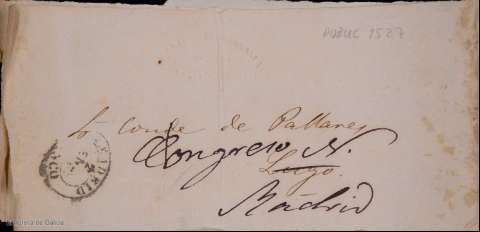 PUBLIC 1527
Conde de Pallares
Congreso N.
Lugo.
Madrid
MADRID
Biblioteca de Galicia